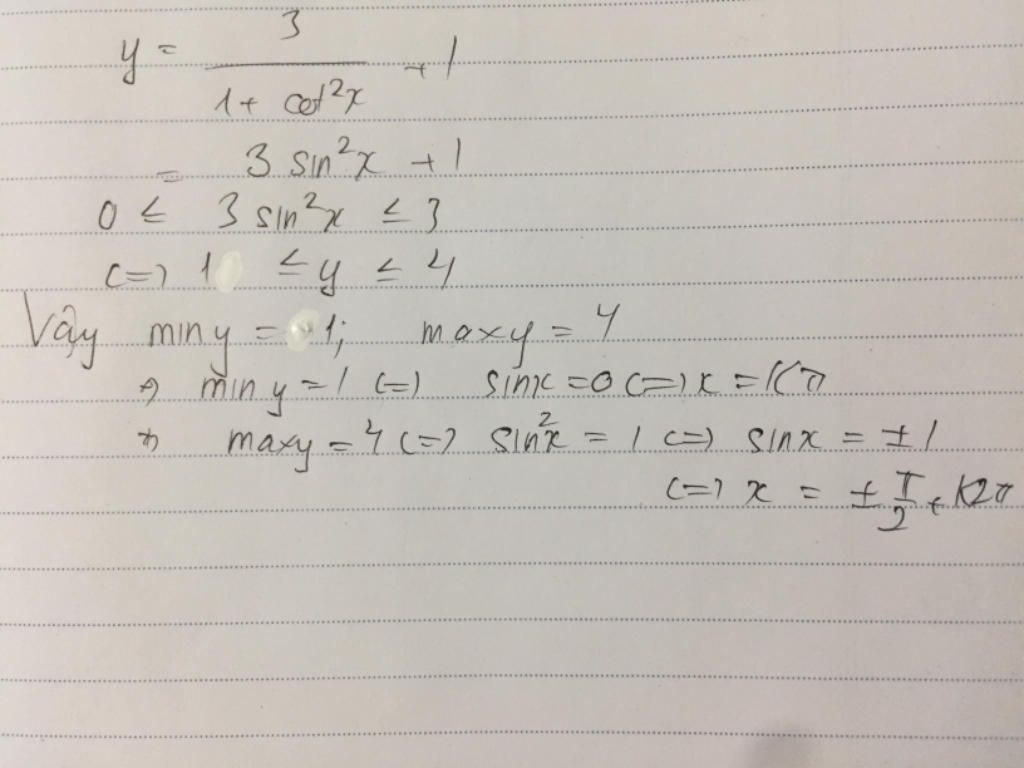 y = 3 / (1 + cot²x) + 1
= 3 sin²x + 1
0 ≤ 3 sin²x ≤ 3
(=) 1 ≤ y ≤ 4
Vậy min y = 1; max y = 4
+) min y = 1 (=) sinx = 0 (=) x = Kπ
+) maxy = 4 (=) sin²x = 1 (=) sinx = ±1
(=) x = ± π/2 + K2π